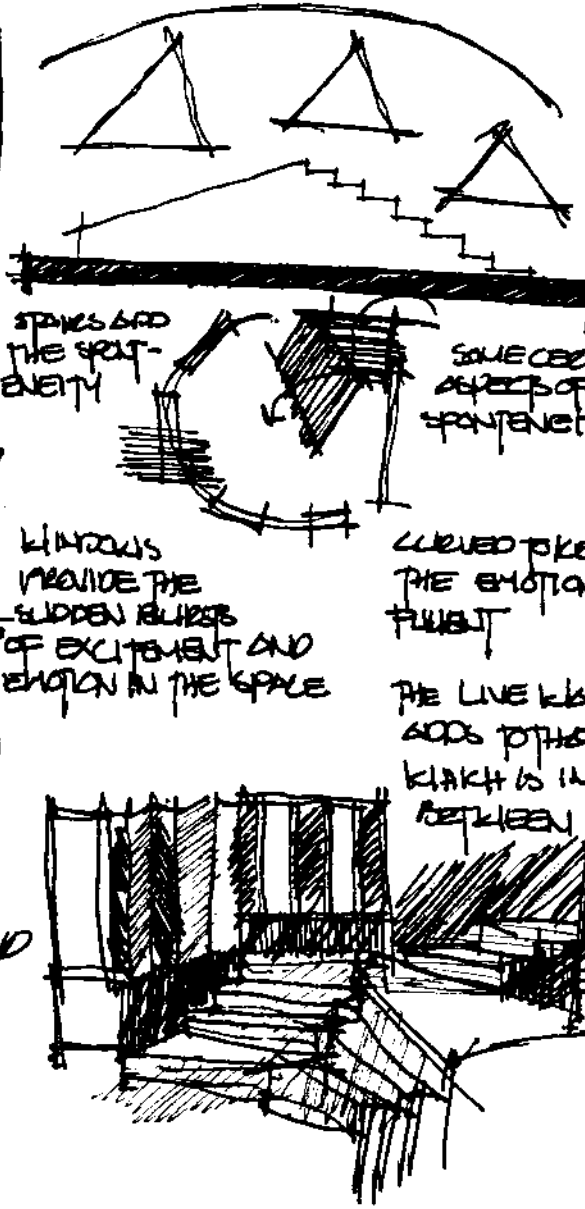 STAIRS AND
THE SPONT-
ENEITY
SOME CER
ASPECTS OF
SPONTENEI
WINDOWS
PROVIDE THE
SUDDEN BURSTS
OF EXCITEMENT AND
EMOTION IN THE SPACE
CURVED TO KE
THE EMOTION
FLUENT
THE LIVE
ADDS TO THE
WHICH IS IN
BETWEEN